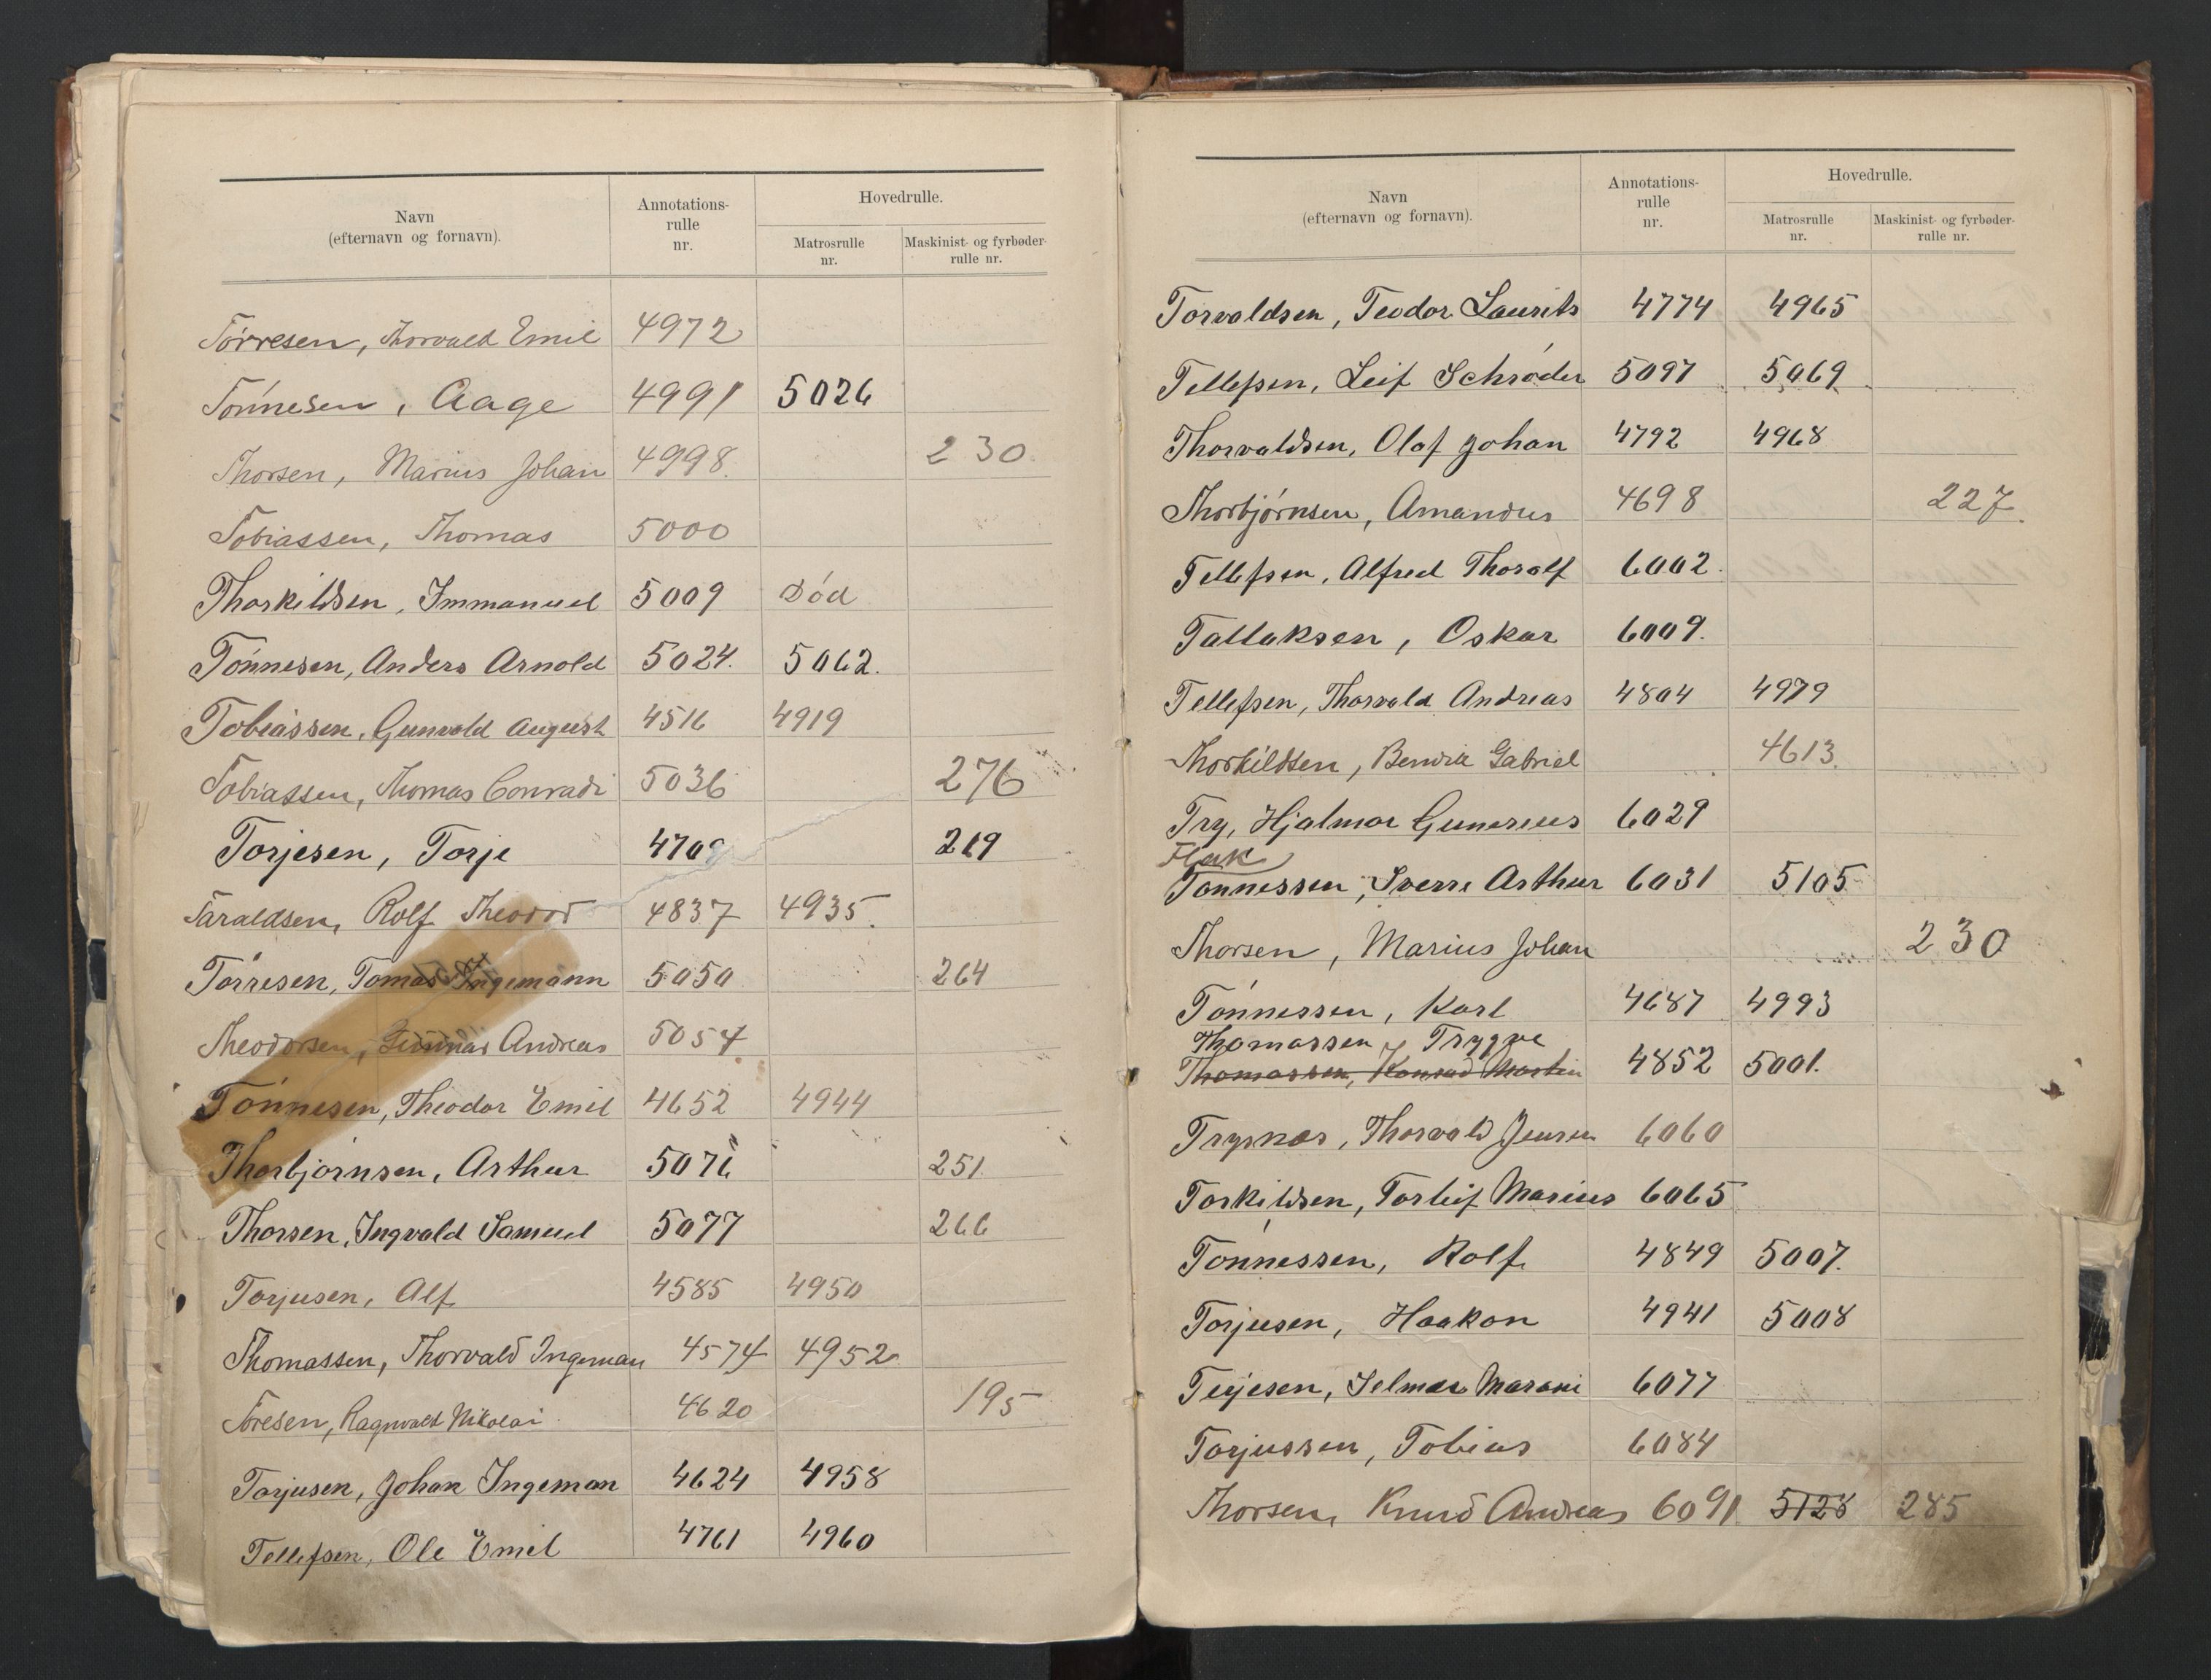 Navn
(efternavn og fornavn).
Annotations-
rulle
nr.
Hovedrulle.
Matrosrulle
nr.
Maskinist- og fyrbøder-
rulle nr.
Törresen, Thorvald Emil 4972
Tönnesen, Aage 4991 5026
Thorsen, Marius Johan 4998. 230.
Tobiassen, Thomas 5000
Thorkildsen, Immanuel 5009 Död
Tönnesen, Anders Arnold 5024. 5062.
Tobiassen, Gunvald August 4516 4919
Tobiassen, Thomas Conradi 5036 276
Torjesen, Torje 4709 219
Taraldsen, Rolf Theodor 4837 4935.
Törresen, Tomas Ingemann 5050 264
Theodorsen, Gunnar Andreas 5054.
Tönnesen, Theodor Emil 4652 4944
Thorbjörnsen, Arthur 5076 251.
Thorsen, Ingvald Samuel 5077 266
Torjusen, Alf 4585 4950
Thomassen, Thorvald Ingeman 4574 4952
Töresen, Ragnvald Nikolai 4620 195
Torjusen, Johan Ingeman 4624 4958
Tellefsen, Ole Emil 4761 4960
Navn
(efternavn og fornavn).
Annotations-
rulle
nr.
Hovedrulle.
Matrosrulle
nr.
Maskinist- og fyrbøder-
rulle nr.
Torvaldsen, Teodor Laurits 4774 4965
Tellefsen, Leif Schröder 5097 5069
Thorvaldsen, Olaf Johan 4792 4968
Thorbjörnsen, Amandus 4698 227.
Tellefsen, Alfred Thoralf 6002.
Tallaksen, Oskar 6009.
Tellefsen, Thorvald Andreas 4804 4979
Thorkildsen, Bendik Gabriel 4613.
Try, Hjalmar Gunerius 6029
Flak
Tönnessen, Sverre Arthur 6031 5105
Thorsen, Marius Johan 230
Tönnessen, Karl 4687 4993
Thomassen, Trygve
Thomassen, Konrad Martin 4852 5001.
Trysnes, Thorvald Jensen 6060
Torkildsen, Torleif Marius 6065
Tönnessen, Rolf 4849 5007.
Torjusen, Haakon 4941 5008
Terjesen, Selmer 6077
Torjussen, Tobias 6084
Thorsen, Knud Andreas 6091. 5128 285